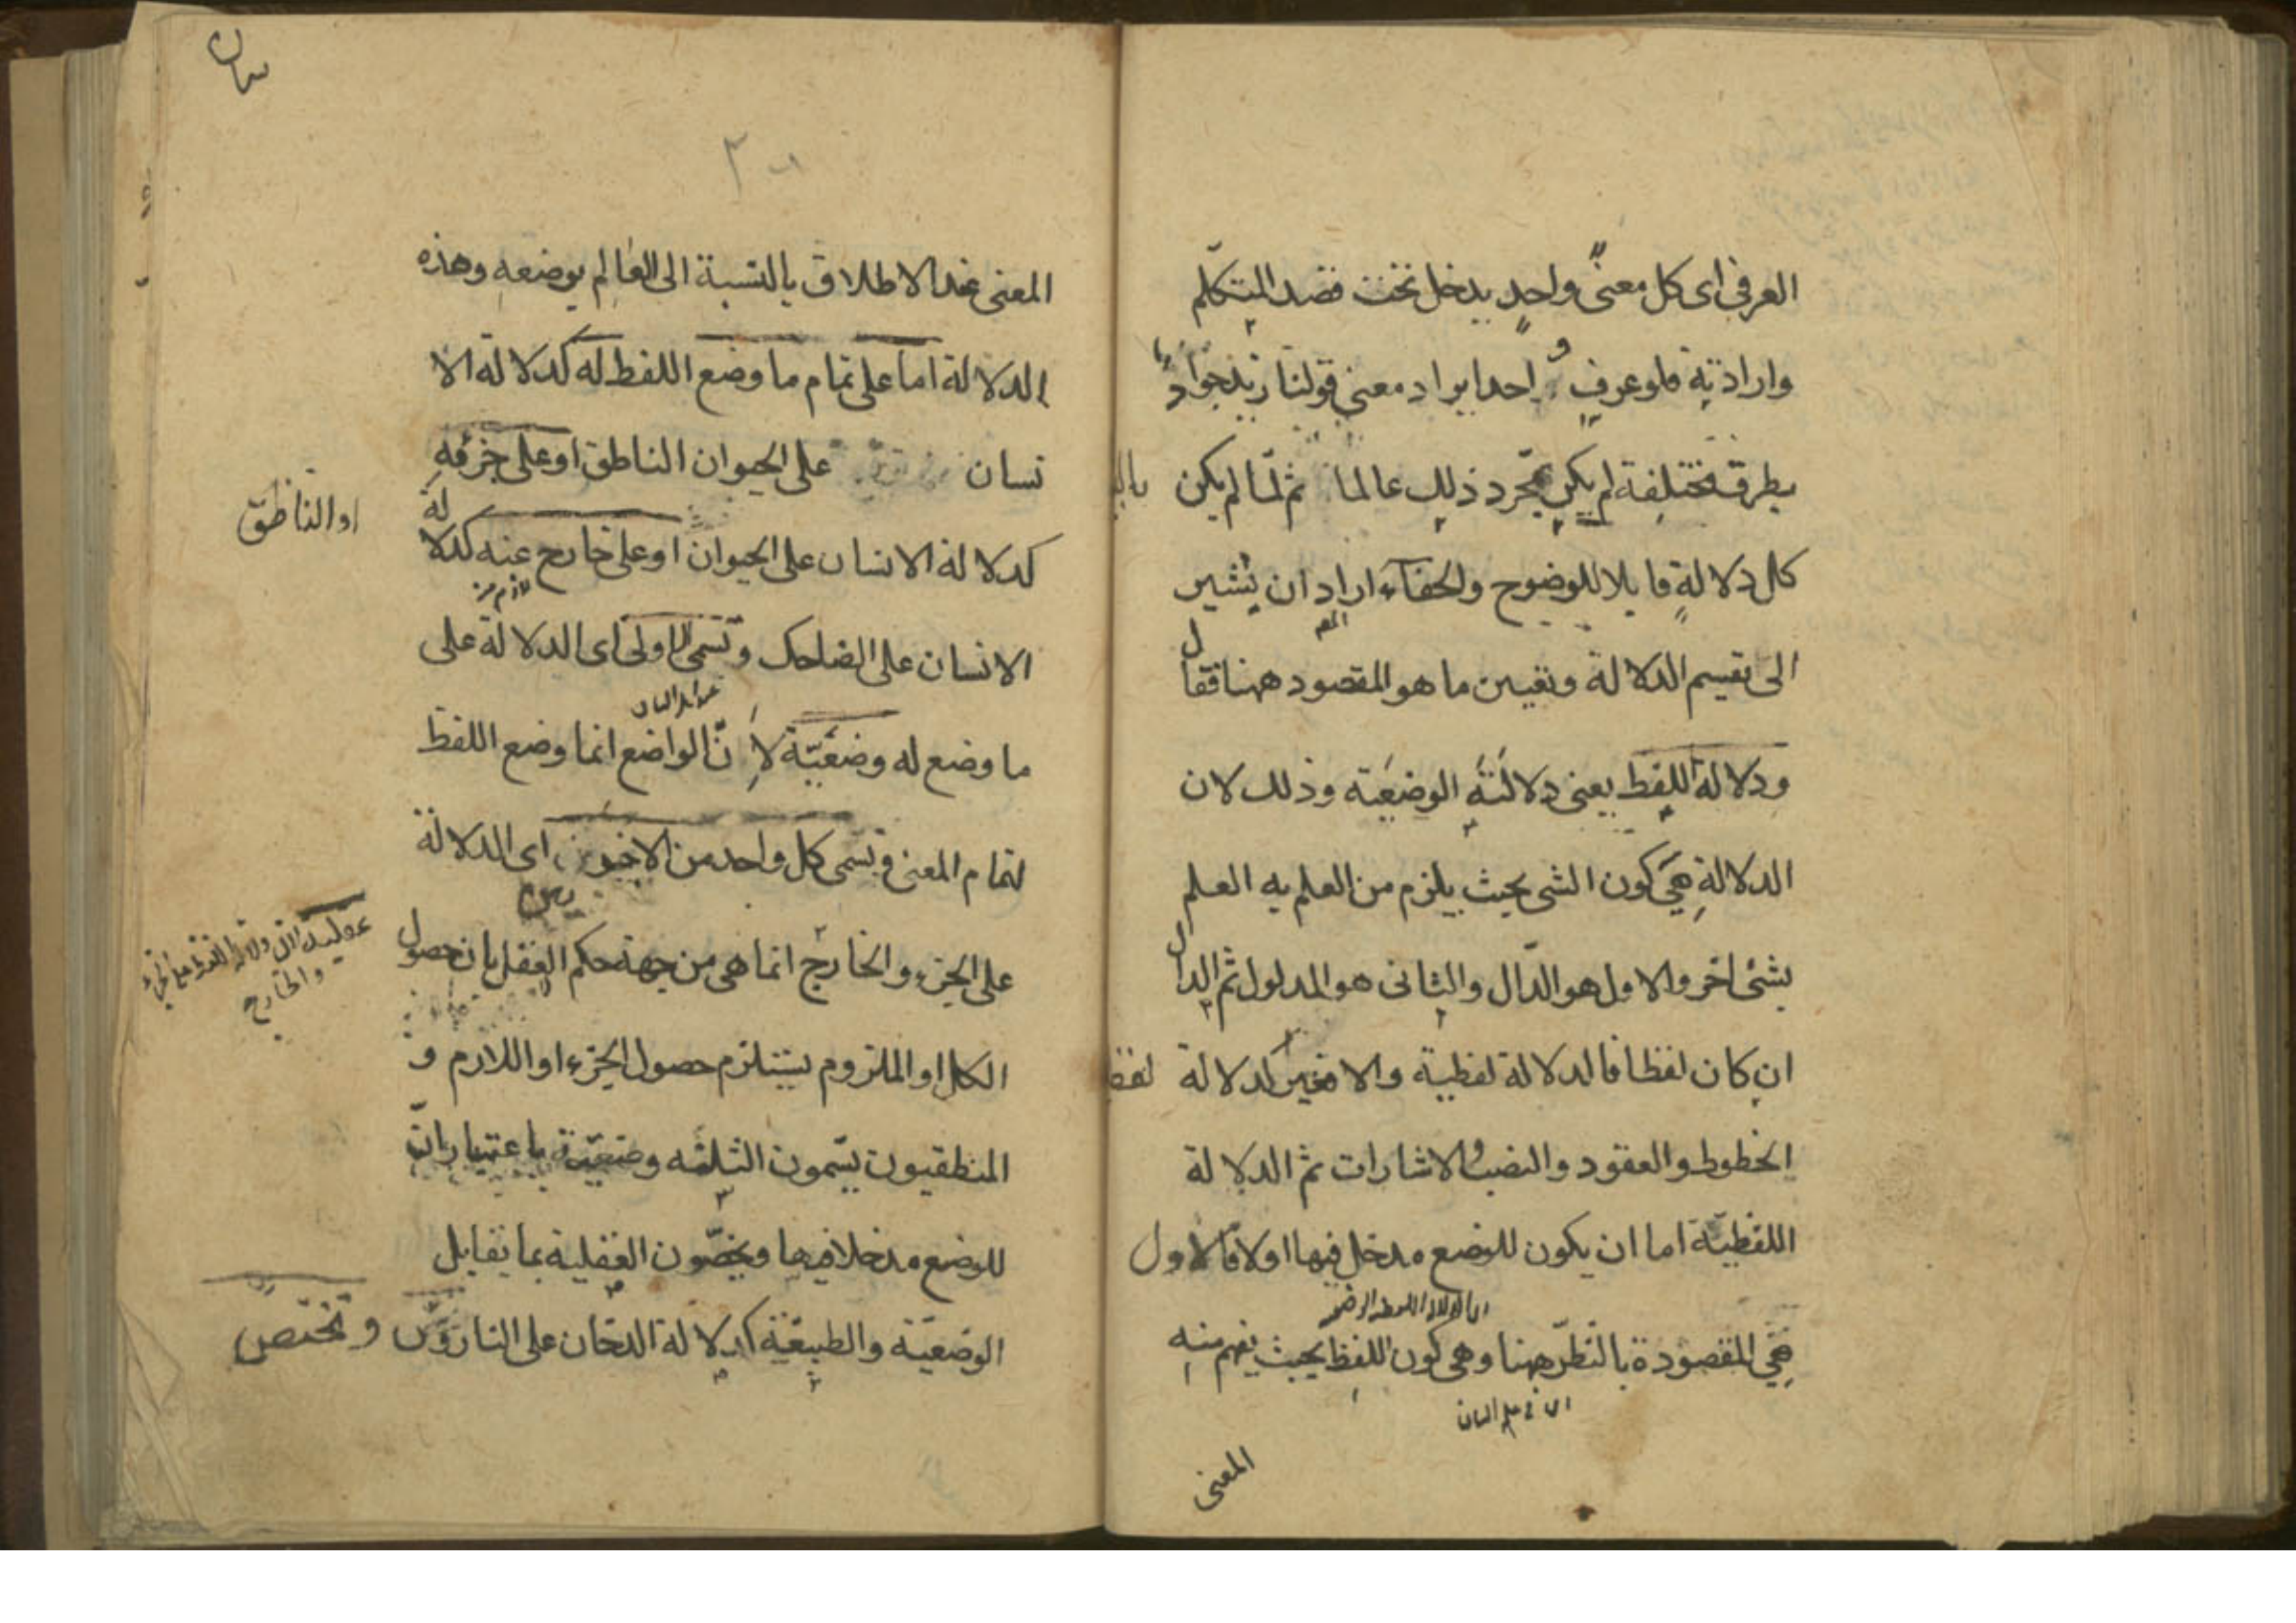 العرفى اى كل معنى واحد يدخل تحت قصد المتكلم
وارادته فلو عرف واحد ايراد معنى قولنا زيد جواد
بطرق مختلفة لم يكن بمجرد ذلك عالما ثم لما لم يكن
كل دلالة قابلا للوضوح والخفاء اراد ان يشير
المص
الى تقسيم الدلالة وتعيين ما هو المقصود ههنا فقال
ودلالة اللفظ يعنى دلالته الوضعية وذلك لان
الدلالة هى كون الشى بحيث يلزم من العلم به العلم
بشئ اخر والاول هو الدال والثانى هو المدلول ثم الدال
ان كان لفظا فالدلالة لفظية والا فغير كدلالة
الخطوط والعقود والنصب والاشارات ثم الدلالة
اللفظية اما ان يكون للوضع مدخل فيها اولا فالاول
اى الدلالة اللفظية الوضعية
هى المقصودة بالنظر ههنا وهى كون اللفظ بحيث يفهم منه
اى فى علم البيان
المعنى
المعنى عند الاطلاق بالنسبة الى العالم بوضعه وهذه
الدلالة اما على تمام ما وضع اللفظ له كدلالة الا
نسان على الحيوان الناطق او على جزئه
كدلالة الانسان على الحيوان او على خارج عنه كدلالة
او الناطق
الانسان على الضاحك وتسمى الاولى اى الدلالة على
ما وضع له وضعية لان الواضع انما وضع اللفظ
لتمام المعنى ويسمى كل واحد من الاخيرين اى الدلالة
على الجزء والخارج انما هى من جهة حكم العقل بان حصول
عقلية لان دلالة اللفظ على الجزء
والخارج
الكل او الملزوم يستلزم حصول الجزء او اللازم و
المنطقيون يسمون الثلثه وضعية باعتبار ان
للوضع مدخلا فيها ويخصون العقلية بما يقابل
الوضعية والطبيعية كدلالة الدخان على النار وتختص